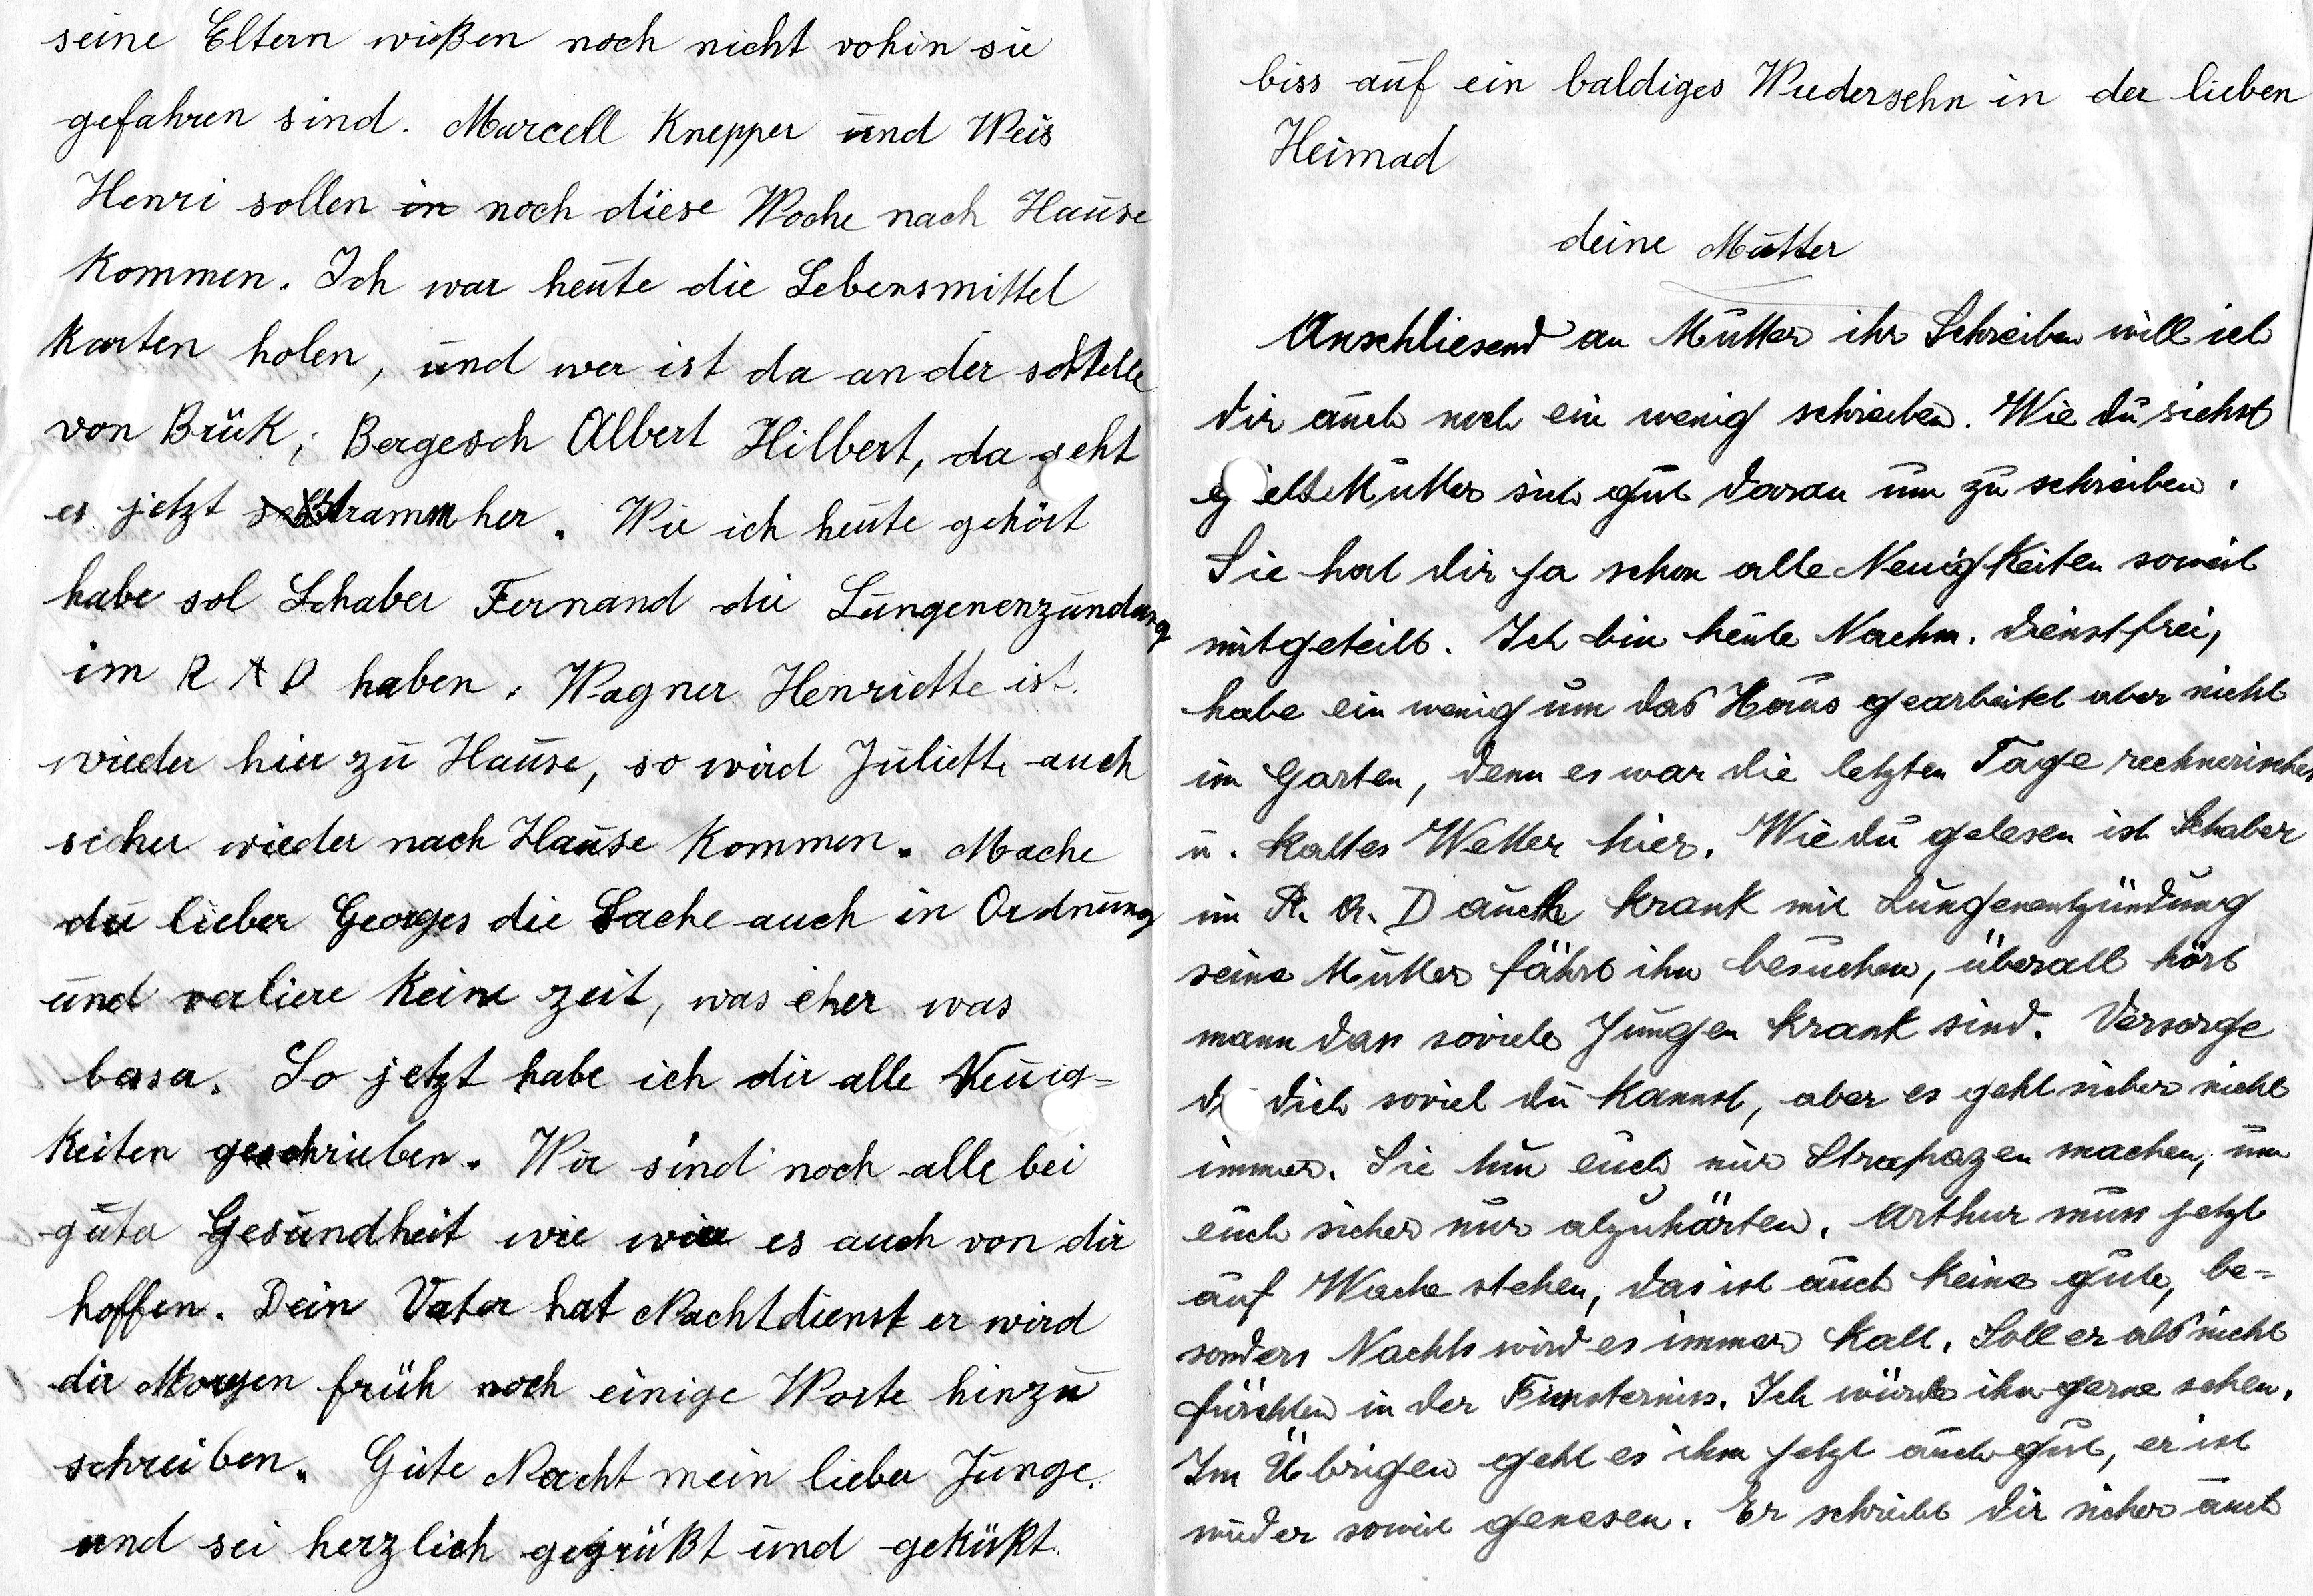 seine Eltern wißen noch nicht vohin sie
gefahren sind. Marcell Knepper und Weis
Henri sollen in noch diese Woche nach Hause
Kommen. Ich war heute die Lebensmittel
Karten holen, und wer ist da an der stelle
von Brük, Bergesch Albert Hilbert, da geht
es jetzt stramm her. Wie ich heute gehört
habe sol Schaber Fernand die Lungenenzündung
im R A D haben. Wagner Henriette ist
wieder hier zu Hause, so wird Juliette auch
sicher wieder nach Hause Kommen. Mache
du lieber Georges die Sache auch in Ordnung
und verliere Keine zeit, was eher was
besser. So jetzt habe ich dir alle Neuig=
Keiten geschrieben. Wir sind noch alle bei
guter Gesundheit wie wir es auch von dir
hoffen. Dein Vater hat Nachtdienst er wird
dir Morgen früh noch einige Worte hinzu
schreiben. Gute Nacht mein lieber Junge.
und sei herzlich gegrüßt und geküßt.
biss auf ein baldiges Wiedersehn in der lieben
Heimad
deine Mutter
Anschliesend an Mutter ihr Schreiben will ich
dir auch noch ein wenig schreiben. Wie du siehst
Mutter sich gut daran um zu schreiben.
Sie hat dir ja schon alle Neuigkeiten soweit
mitgeteilt. Ich bin heute Nachm. dienstfrei,
habe ein wenig um das Haus gearbeitet aber nicht
im Garten, denn es war die letzten Tage rechnerisches
u. kaltes Wetter hier. Wie du gelesen ist Schaber
im R. A. D auch krank mit Lungenentzündung
seine Mutter fährt ihn besuchen, überall hört
mann dass soviele Jungen krank sind. Versorge
du dich soviel du kannst, aber es geht sicher nicht
immer. Sie tun euch nur Strapazen machen, um
euch sicher nur abzuhärten. Arthur muss jetzt
auf Wache stehen, das ist auch keine gute, be=
sonders Nachts wird es immer kalt. Soll er als nicht
fürchten in der Finsterniss. Ich würde ihn gerne sehen.
Im Übrigen geht es ihm jetzt auch gut, er ist
wieder soweit genesen. Er schreibt dir sicher auch